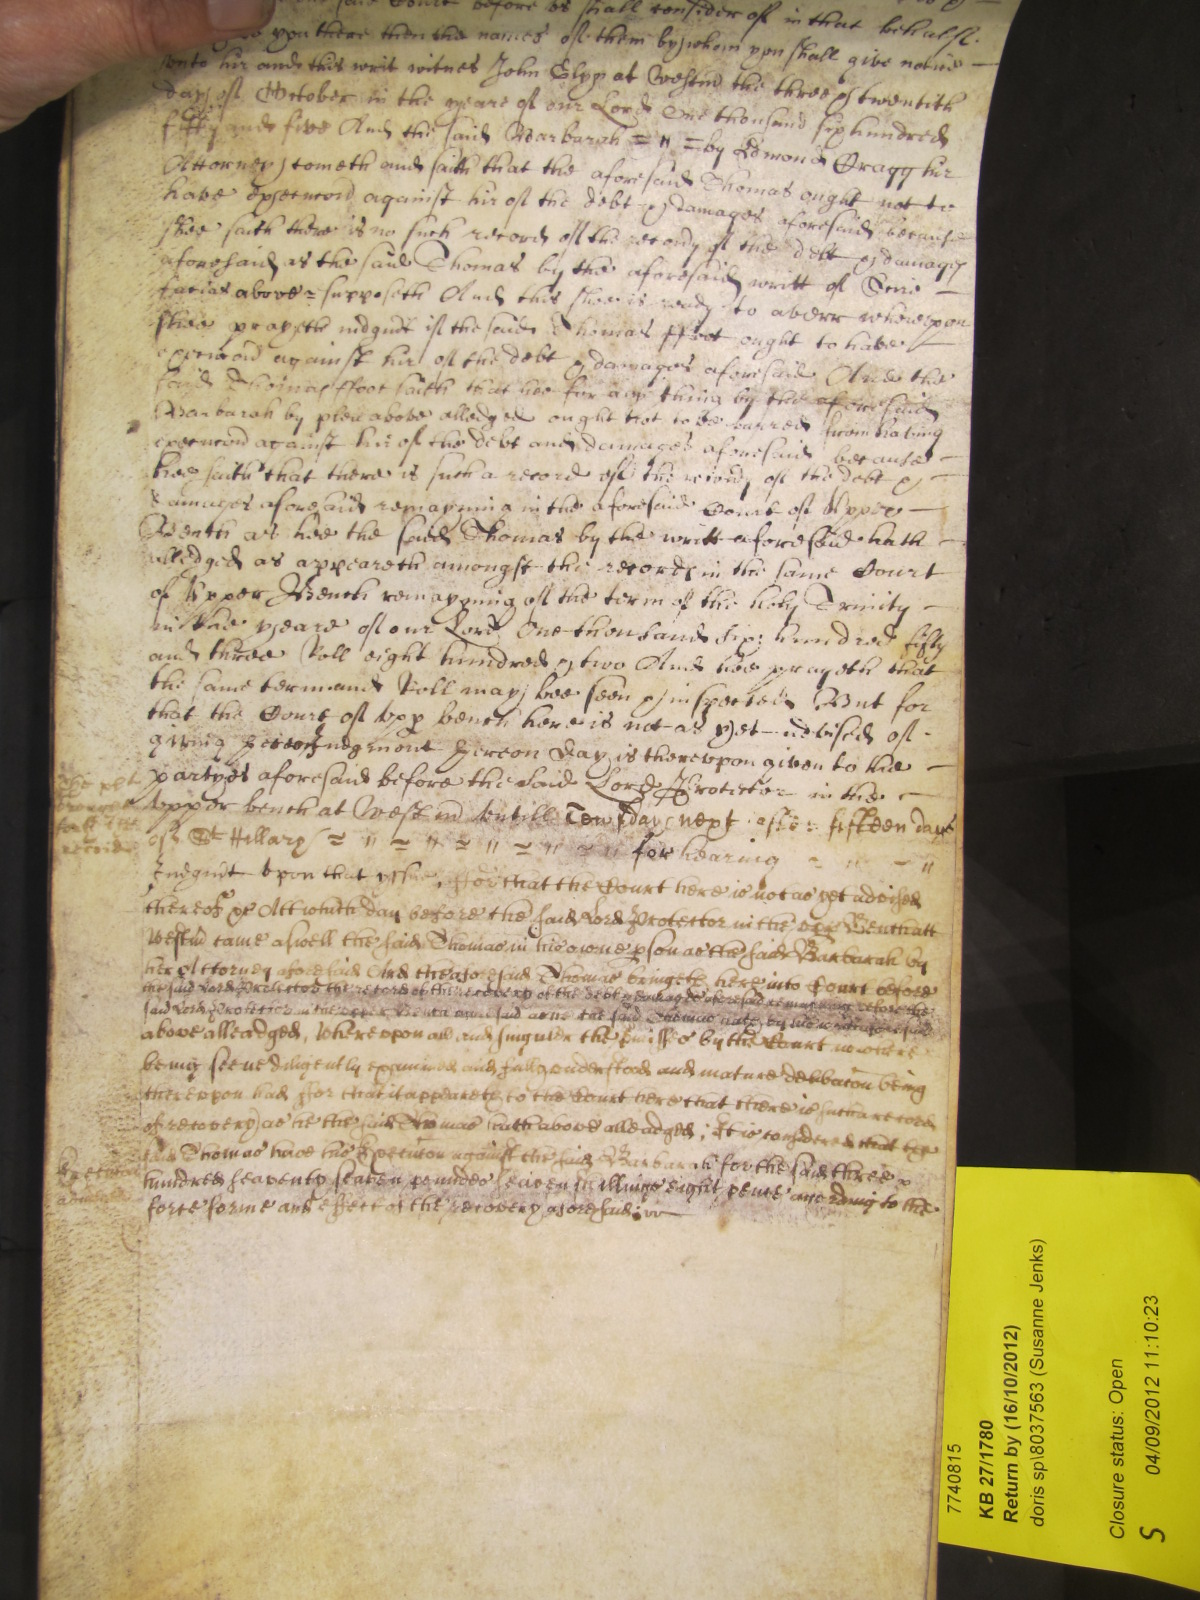 the said Court before us shall consider of in that behalf.
you there then the names of them by whom you shall give notice
unto hir and this writ witnes John Glyn at Westmr the three & twentith
day of October in the yeare of our Lord One thousand six hundred
fifty and five And the said Barbarah = " = by Edmond Cragg hir
Attorney cometh and saith that the aforesaid Thomas ought not to
have execucon against hir of the debt & damages aforesaid because
shee saith there is no such record of the recovy of the debt & damages
aforesaid as the said Thomas by the aforesaid writt of Scire
facias above supposeth And this shee is ready to averr whereupon
shee prayeth iudgmt if the said Thomas ffoot ought to have
execucon against hir of the debt & damages aforesaid And the
said Thomas ffoot saith that hee for any thing by the aforesaid
Barbarah by plea above alledged ought not to be barred from having
execucon against hir of the debt and damages aforesaid because
hee saith that there is such a record of the recovy of the debt &
damages aforesaid remayning in the aforesaid Court of Upper
Bench as hee the said Thomas by the writt aforesaid hath
alledged as appeareth amongst the records in the same Court
of Upper Bench remayning of the term of the holy Trinity
in the yeare of our Lord One thousand six hundred fifty
and three Roll eight hundred & two And hee prayeth that
the same term and Roll may bee seen & inspected But for
that the Court of upp bench here is not as yet advised of
giving iudgment hereon day is thereupon given to the
partyes aforesaid before the said Lord Protector in the
The plt
brought
forth the
record
Upper bench at Westmr untill Tewsday next after fifteen dayes
of St Hillary = " = " = " = " = " for hearing = " = "
Judgmt upon that yssue, ffor that the Court here is not as yet advised
thereof &c Att which day before the said Lord Protector in the upp Bench att
Westmr came aswell the said Thomas in his owne pson as the said Barbarah by
her Attorney aforesaid And the aforesaid Thomas bringeth here into Court before
the said Lord Protector the record of the recovery of the debt & damages aforesaid remayning before the
said Lord Protector in the upper Bench as he the said Thomas hath by the writt aforesaid
above alleadged, Whereupon all and singuler the pmisses by the Court now here
being seene diligently examined and fully understood and mature deliberacon being
thereupon had ffor that it appeareth to the Court here that there is such a record
of recovery as he the said Thomas hath above alleadged; It is considered that the
Execucon
said Thomas have his Execution against the said Barbarah for the said three
hundred seaventy seaven poundes seaven shillings eight pence according to the
force forme and effect of the recovery aforesaid:
7740815
KB 27/1780
Return by (16/10/2012)
doris sp\8037563 (Susanne Jenks)
Closure status: Open
S
04/09/2012 11:10:23